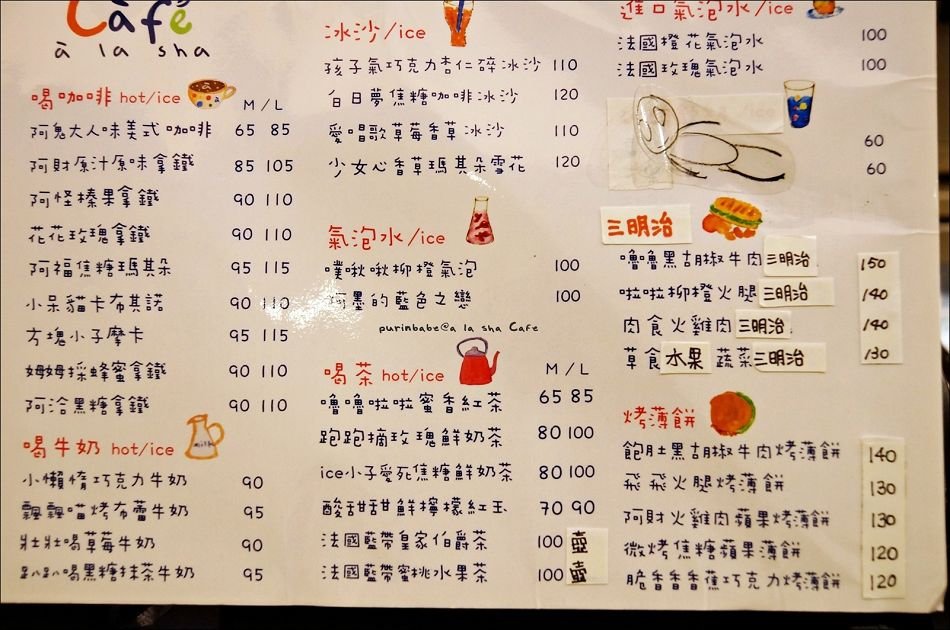 Café
à la sha
喝咖啡 hot/ice M/L
阿鬼大人味美式咖啡 65 85
阿財原汁原味拿鐵 85 105
阿怪榛果拿鐵 90 110
花花玫瑰拿鐵 90 110
阿福焦糖瑪其朵 95 115
小呆貓卡布其諾 90 110
方塊小子摩卡 95 115
姆姆採蜂蜜拿鐵 90 110
阿洽黑糖拿鐵 90 110
喝牛奶 hot/ice
milk
小懶惰巧克力牛奶 90
飄飄喵烤布蕾牛奶 95
壯壯喝草莓牛奶 90
趴趴喝黑糖抹茶牛奶 95
冰沙/ice
孩子氣巧克力杏仁碎冰沙 110
白日夢焦糖咖啡冰沙 120
愛唱歌草莓香草冰沙 110
少女心香草瑪其朵雪花 120
氣泡水/ice
噗啾啾柳橙氣泡 100
阿墨的藍色之戀 100
purinbabe@a la sha Cafe
喝茶 hot/ice M/L
嚕嚕啦啦蜜香紅茶 65 85
跑跑摘玫瑰鮮奶茶 80 100
ice小子愛死焦糖鮮奶茶 80 100
酸甜甜鮮檸檬紅玉 70 90
法國藍帶皇家伯爵茶 100 壺
法國藍帶蜜桃水果茶 100 壺
進口氣泡水/ice
法國橙花氣泡水 100
法國玫瑰氣泡水 100
60
60
三明治
嚕嚕黑胡椒牛肉三明治 150
啦啦柳橙火腿三明治 140
肉食火雞肉三明治 140
草食水果蔬菜三明治 130
烤薄餅
飽肚黑胡椒牛肉烤薄餅 140
飛飛火腿烤薄餅 130
阿財火雞肉蘋果烤薄餅 130
微烤焦糖蘋果薄餅 120
脆香香香蕉巧克力烤薄餅 120